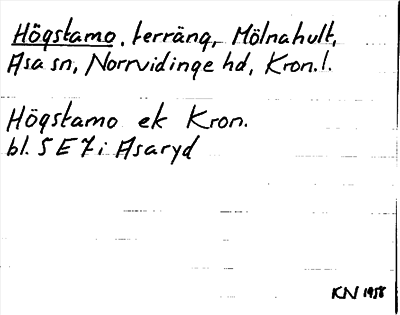 Högstamo, terräng, Mölnahult,
Asa sn, Norrvidinge hd, Kron. l.
Högstamo ek Kron.
bl. 5 E 7 i Asaryd
KN 1958